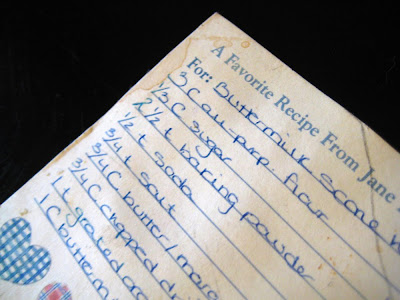 A Favorite Recipe From Jane
For: Buttermilk Scone
3 C all-purp. flour
1/3 C sugar
2 1/2 t baking powder
1/2 t soda
3/4 t salt
3/4 C butter/marg
3/4 C chopped
1 t grated
1 C butterm